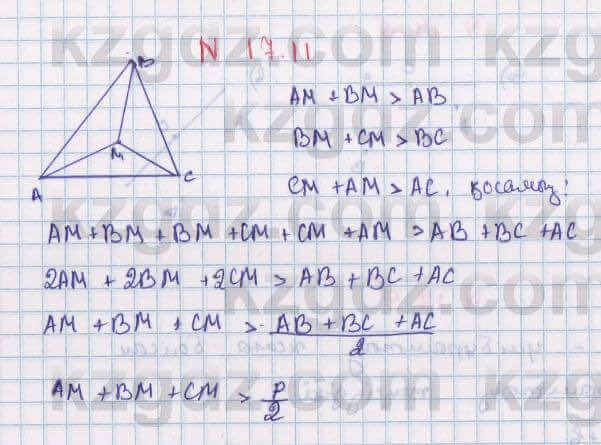 N 17.11
B
AM + BM > AB
BM + CM > BC
M
CM + AM > AC, қосамыз:
A
C
AM + BM + BM + CM + CM + AM > AB + BC + AC
2AM + 2BM + 2CM > AB + BC + AC
AM + BM + CM > AB + BC + AC / 2
AM + BM + CM > P / 2
kzgdz.com